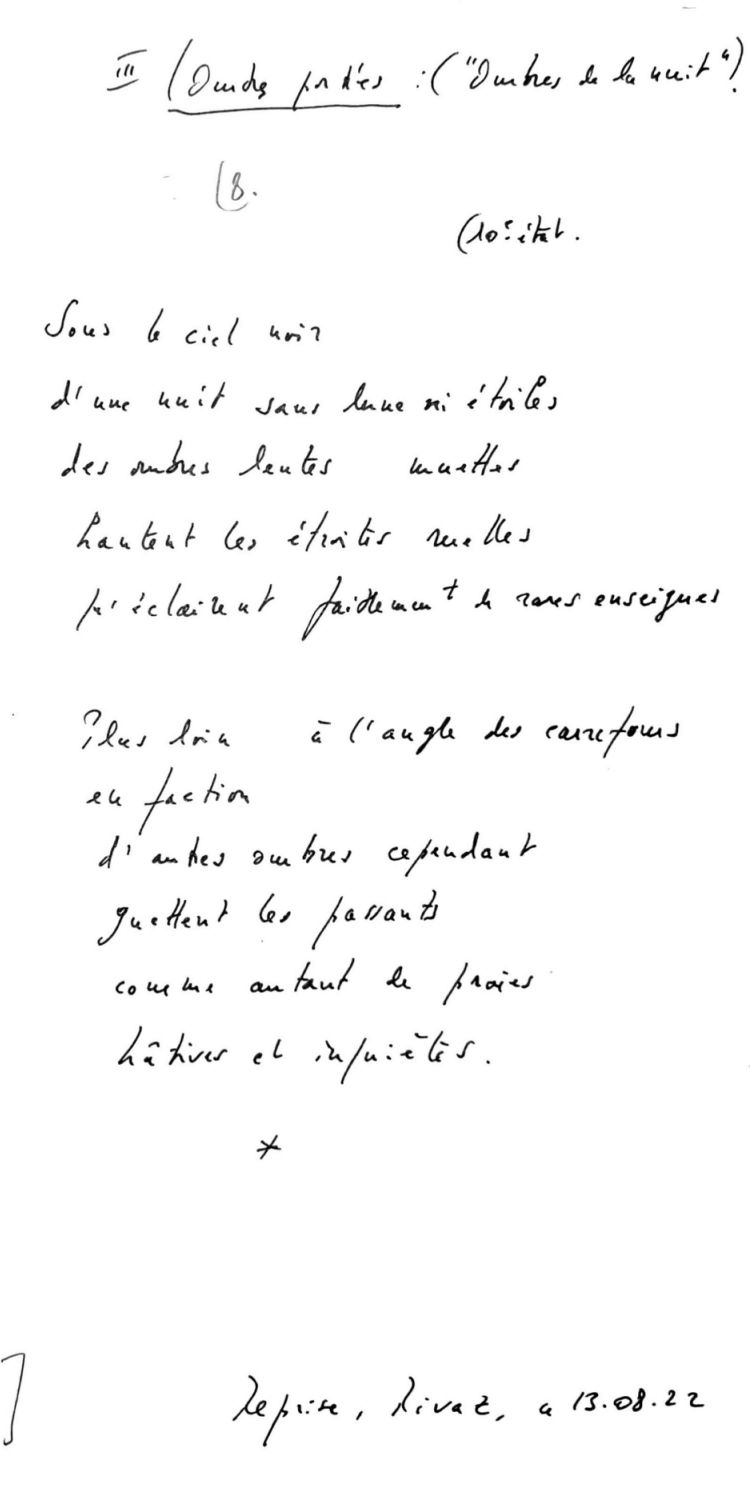 III (Ombres portées : ("Ombres de la nuit")
(8.
(10e état.
Sous le ciel noir
d'une nuit sans lune ni étoiles
des ombres lentes muettes
hantent les étroites ruelles
qu'éclairent faiblement de rares enseignes
Plus loin à l'angle des carrefours
en faction
d'autres ombres cependant
guettent les passants
comme autant de proies
hâtives et inquiètes.
*
]
Reprise, Rivaz, le 13.08.22